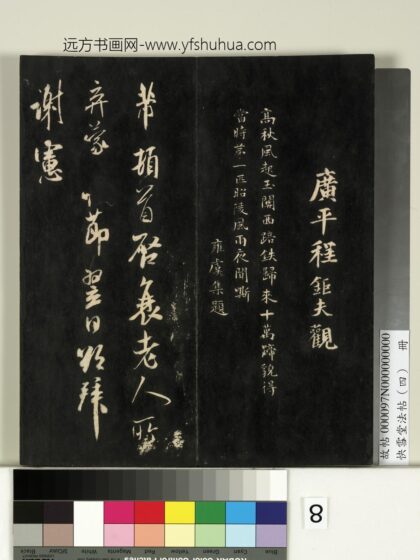 远方书画网-www.yfshuhua.com
廣平程鉅夫觀
高秋風起玉關西踣鉄歸來十萬蹄貌得
當時第一匹昭陵風雨夜聞嘶
雍虞集題
芾頓首啓衰老人
弃蒙
節翌日
拜
谢憲
故帖000097N000000000 冊
快雪堂法帖（四）
8